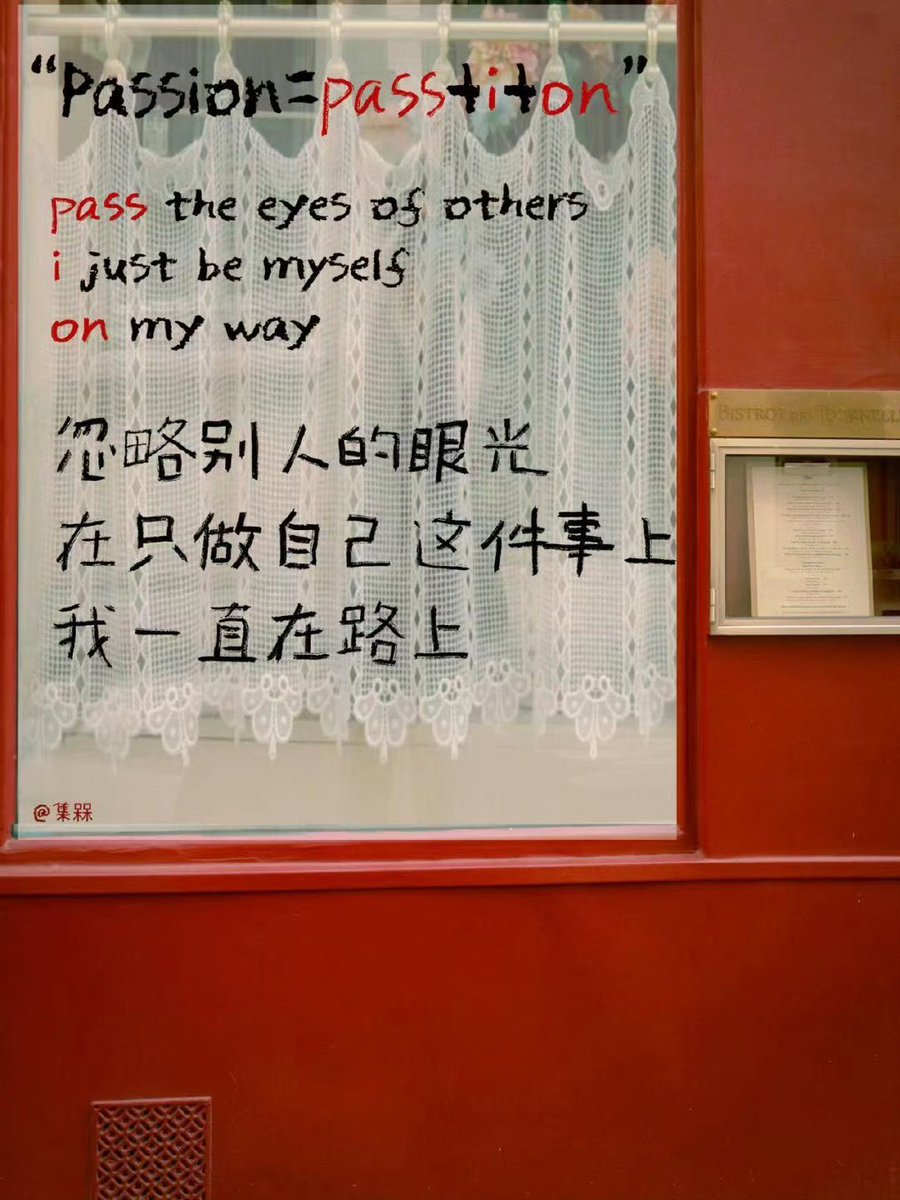 “Passion=pass+i+on”
pass the eyes of others
i just be myself
on my way
忽略别人的眼光
在只做自己这件事上
我一直在路上
@集槑
BISTROT DES TOURNELLES